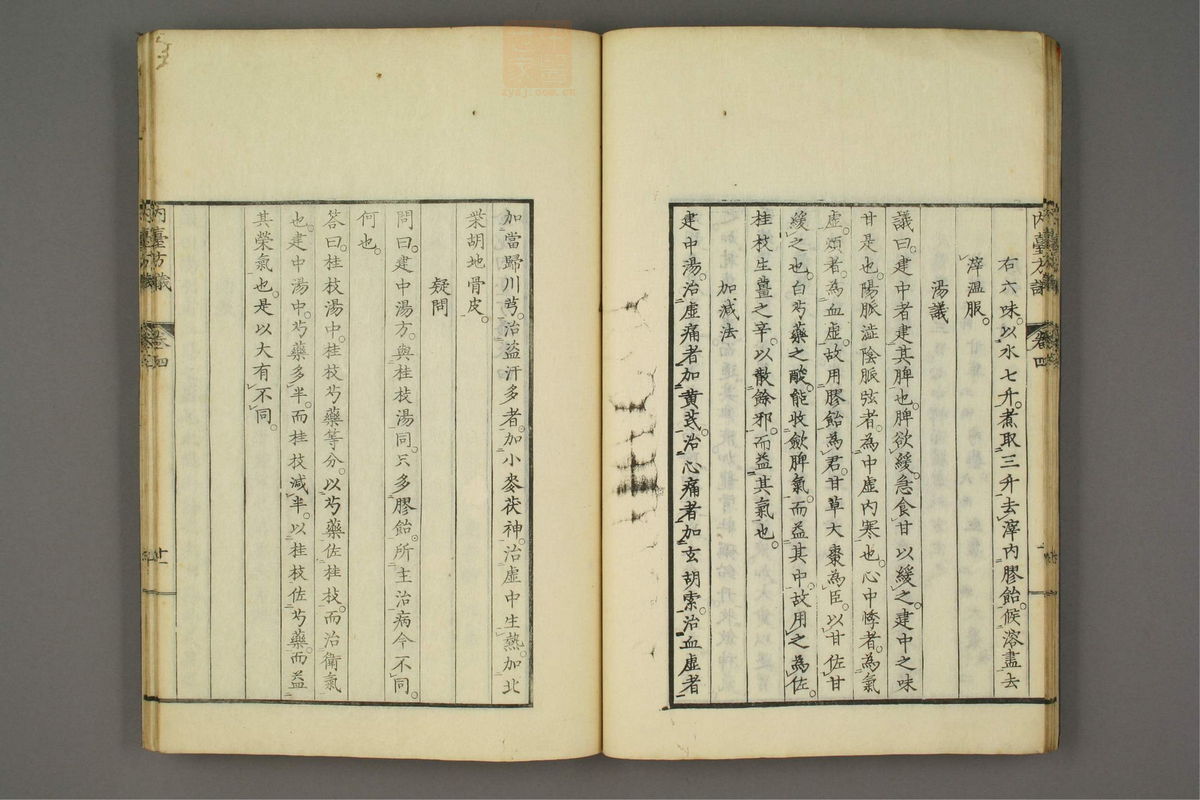 內臺方議 卷四
右六味。以水七升。煮取三升。去滓。內膠飴。候溶盡。去
滓。溫服。
湯議
議曰。建中者。建其脾也。脾欲緩。急食甘以緩之。建中之味
甘是也。陽脈澁陰脈弦者。為中虛內寒也。心中悸者。為氣
虛。煩者。為血虛。故用膠飴為君。甘草大棗為臣。以甘佐甘
緩之也。白芍藥之酸。能收斂脾氣。而益其中。故用之為佐。
桂枝生薑之辛。以散餘邪。而益其氣也。
加減法
建中湯。治虛痛者。加黃芪。治心痛者。加玄胡索。治血虛者
加當歸川芎。治盜汗多者。加小麥茯神。治虛中生熱。加北
柴胡地骨皮。
疑問
問曰。建中湯方。與桂枝湯同。只多膠飴。所主治病今不同。
何也。
答曰。桂枝湯中。桂枝芍藥等分。以芍藥佐桂枝。而治衛氣
也。建中湯中。芍藥多半。而桂枝減半。以桂枝佐芍藥。而益
其榮氣也。是以大有不同。
內臺方議 卷四 廿一
zysj.com.cn